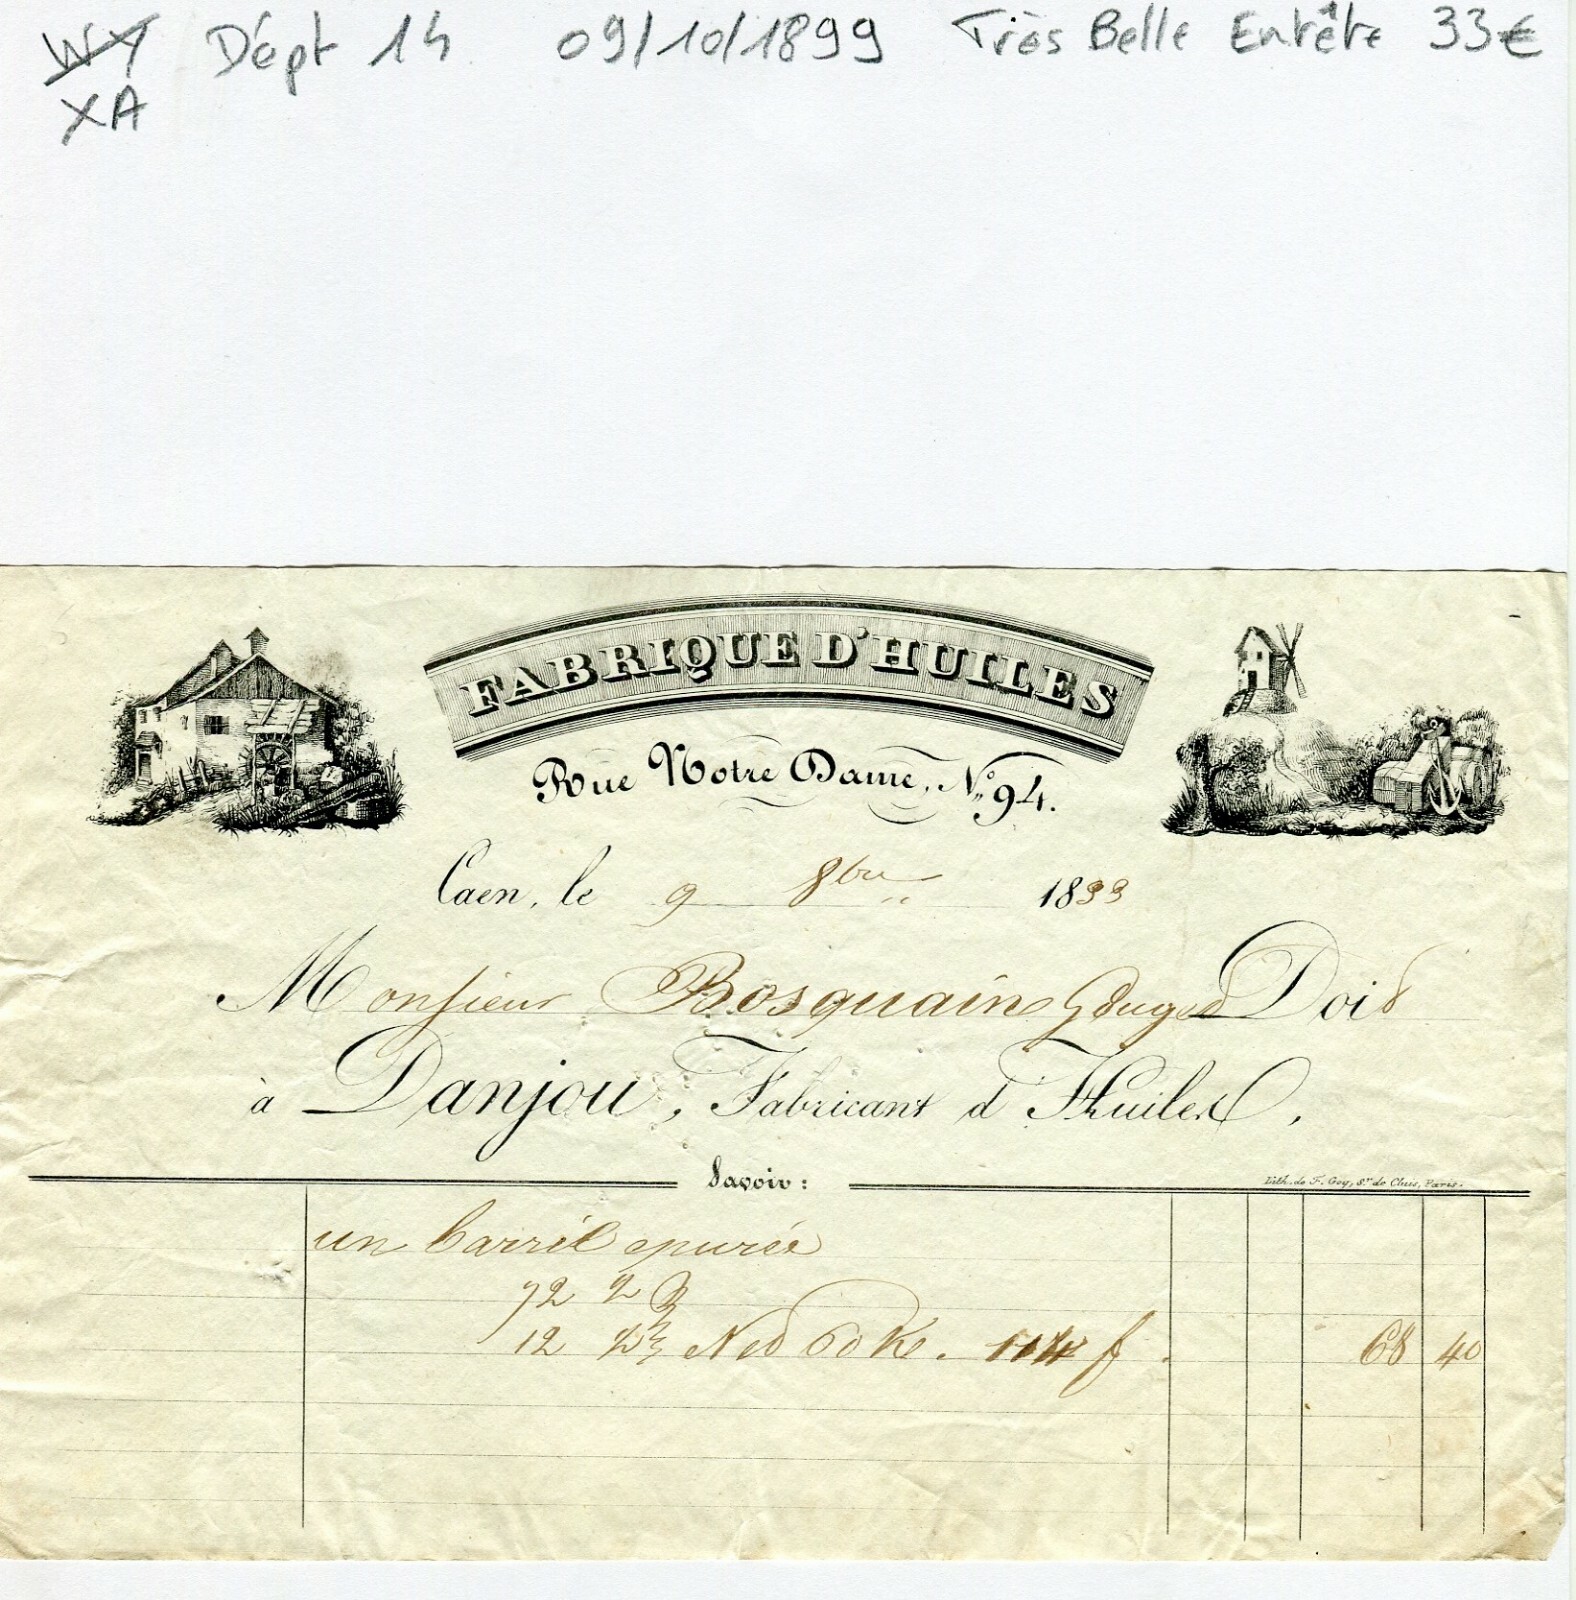 WT Dépt 14 09/10/1899 Très Belle Entête 33€
XA
FABRIQUE D'HUILES
Rue Notre Dame, N° 94.
Caen, le 9 8bre 1833
Monsieur Bosquain Doit
à Danjou, Fabricant d'Huiles,
Savoir :
Lith. de F. Goy, Sr. de Cluis, Paris.
un barril epurée
72
12 Net 60 K. 114 f. 68 40